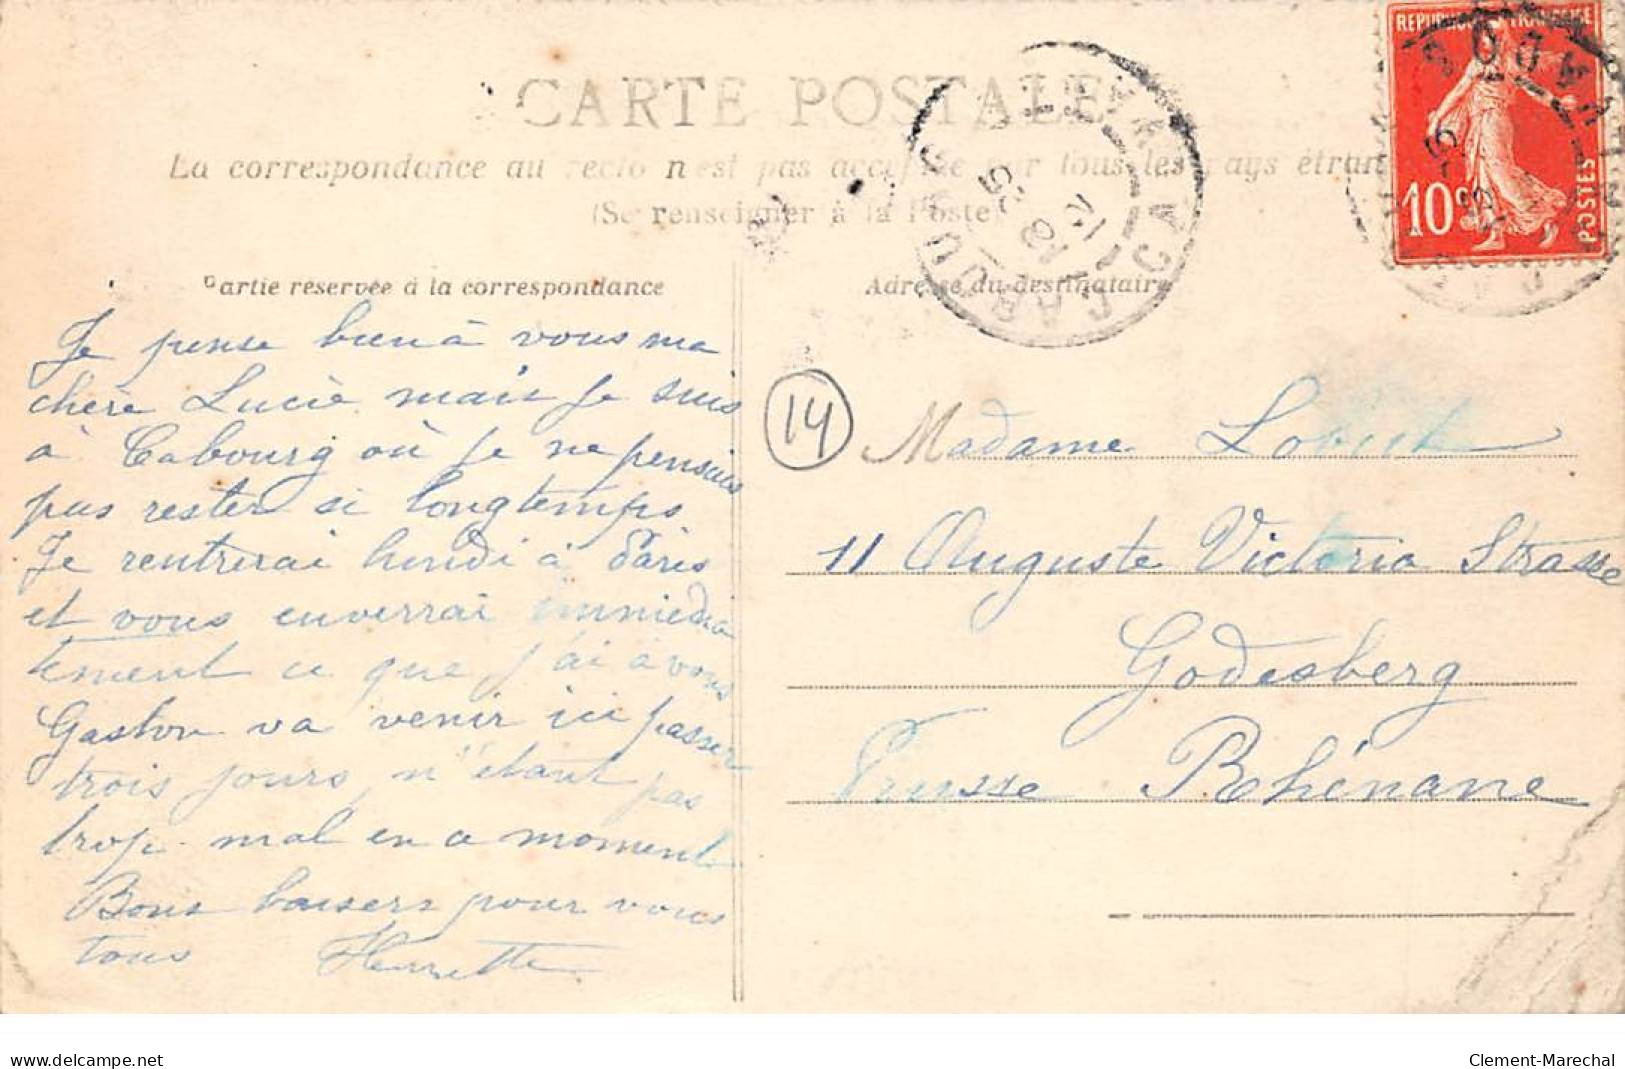 CARTE POSTALE
La correspondance au recto n'est pas acceptée par tous les pays étran
(Se renseigner à la Poste)
Partie réservée à la correspondance
Adresse du destinataire
REPUBLIQUE FRANÇAISE
10c
POSTES
CABOURG
CALVADOS
14
Je pense bien à vous ma
chère Lucie mais je suis
à Cabourg où je ne pensais
pas rester si longtemps
Je rentrerai lundi à Paris
et vous enverrai immédia
tement ce que j'ai à vous
Gaston va venir ici passer
trois jours, n'étant pas
trop mal en ce moment
Bons baisers pour vous
tous Henriette
Madame
11 Auguste Victoria Strasse
Godesberg
Prusse Rhénane
delcampe.net
Clement-Marechal